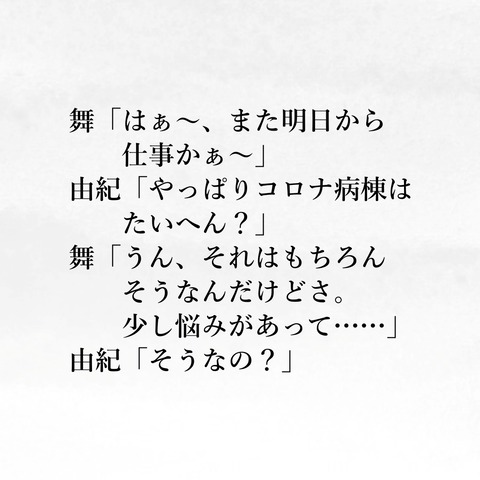 舞「はぁ～、また明日から
仕事かぁ～」
由紀「やっぱりコロナ病棟は
たいへん？」
舞「うん、それはもちろん
そうなんだけどさ。
少し悩みがあって……」
由紀「そうなの？」